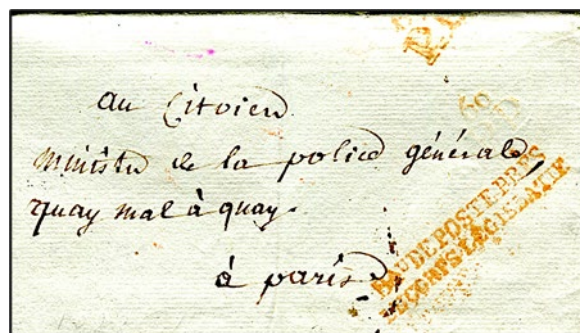 au Citoien
ministre de la police générale,
quay mal à quay.
à paris
BAU DE POSTE PRES
DU CORPS LEGISLATIF
60